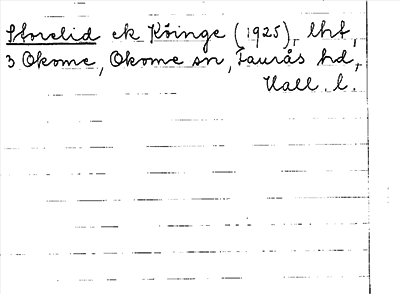 Storelid ek Köinge (1925), lht,
3 Okome, Okome sn, Faurås hd,
Hall. l.